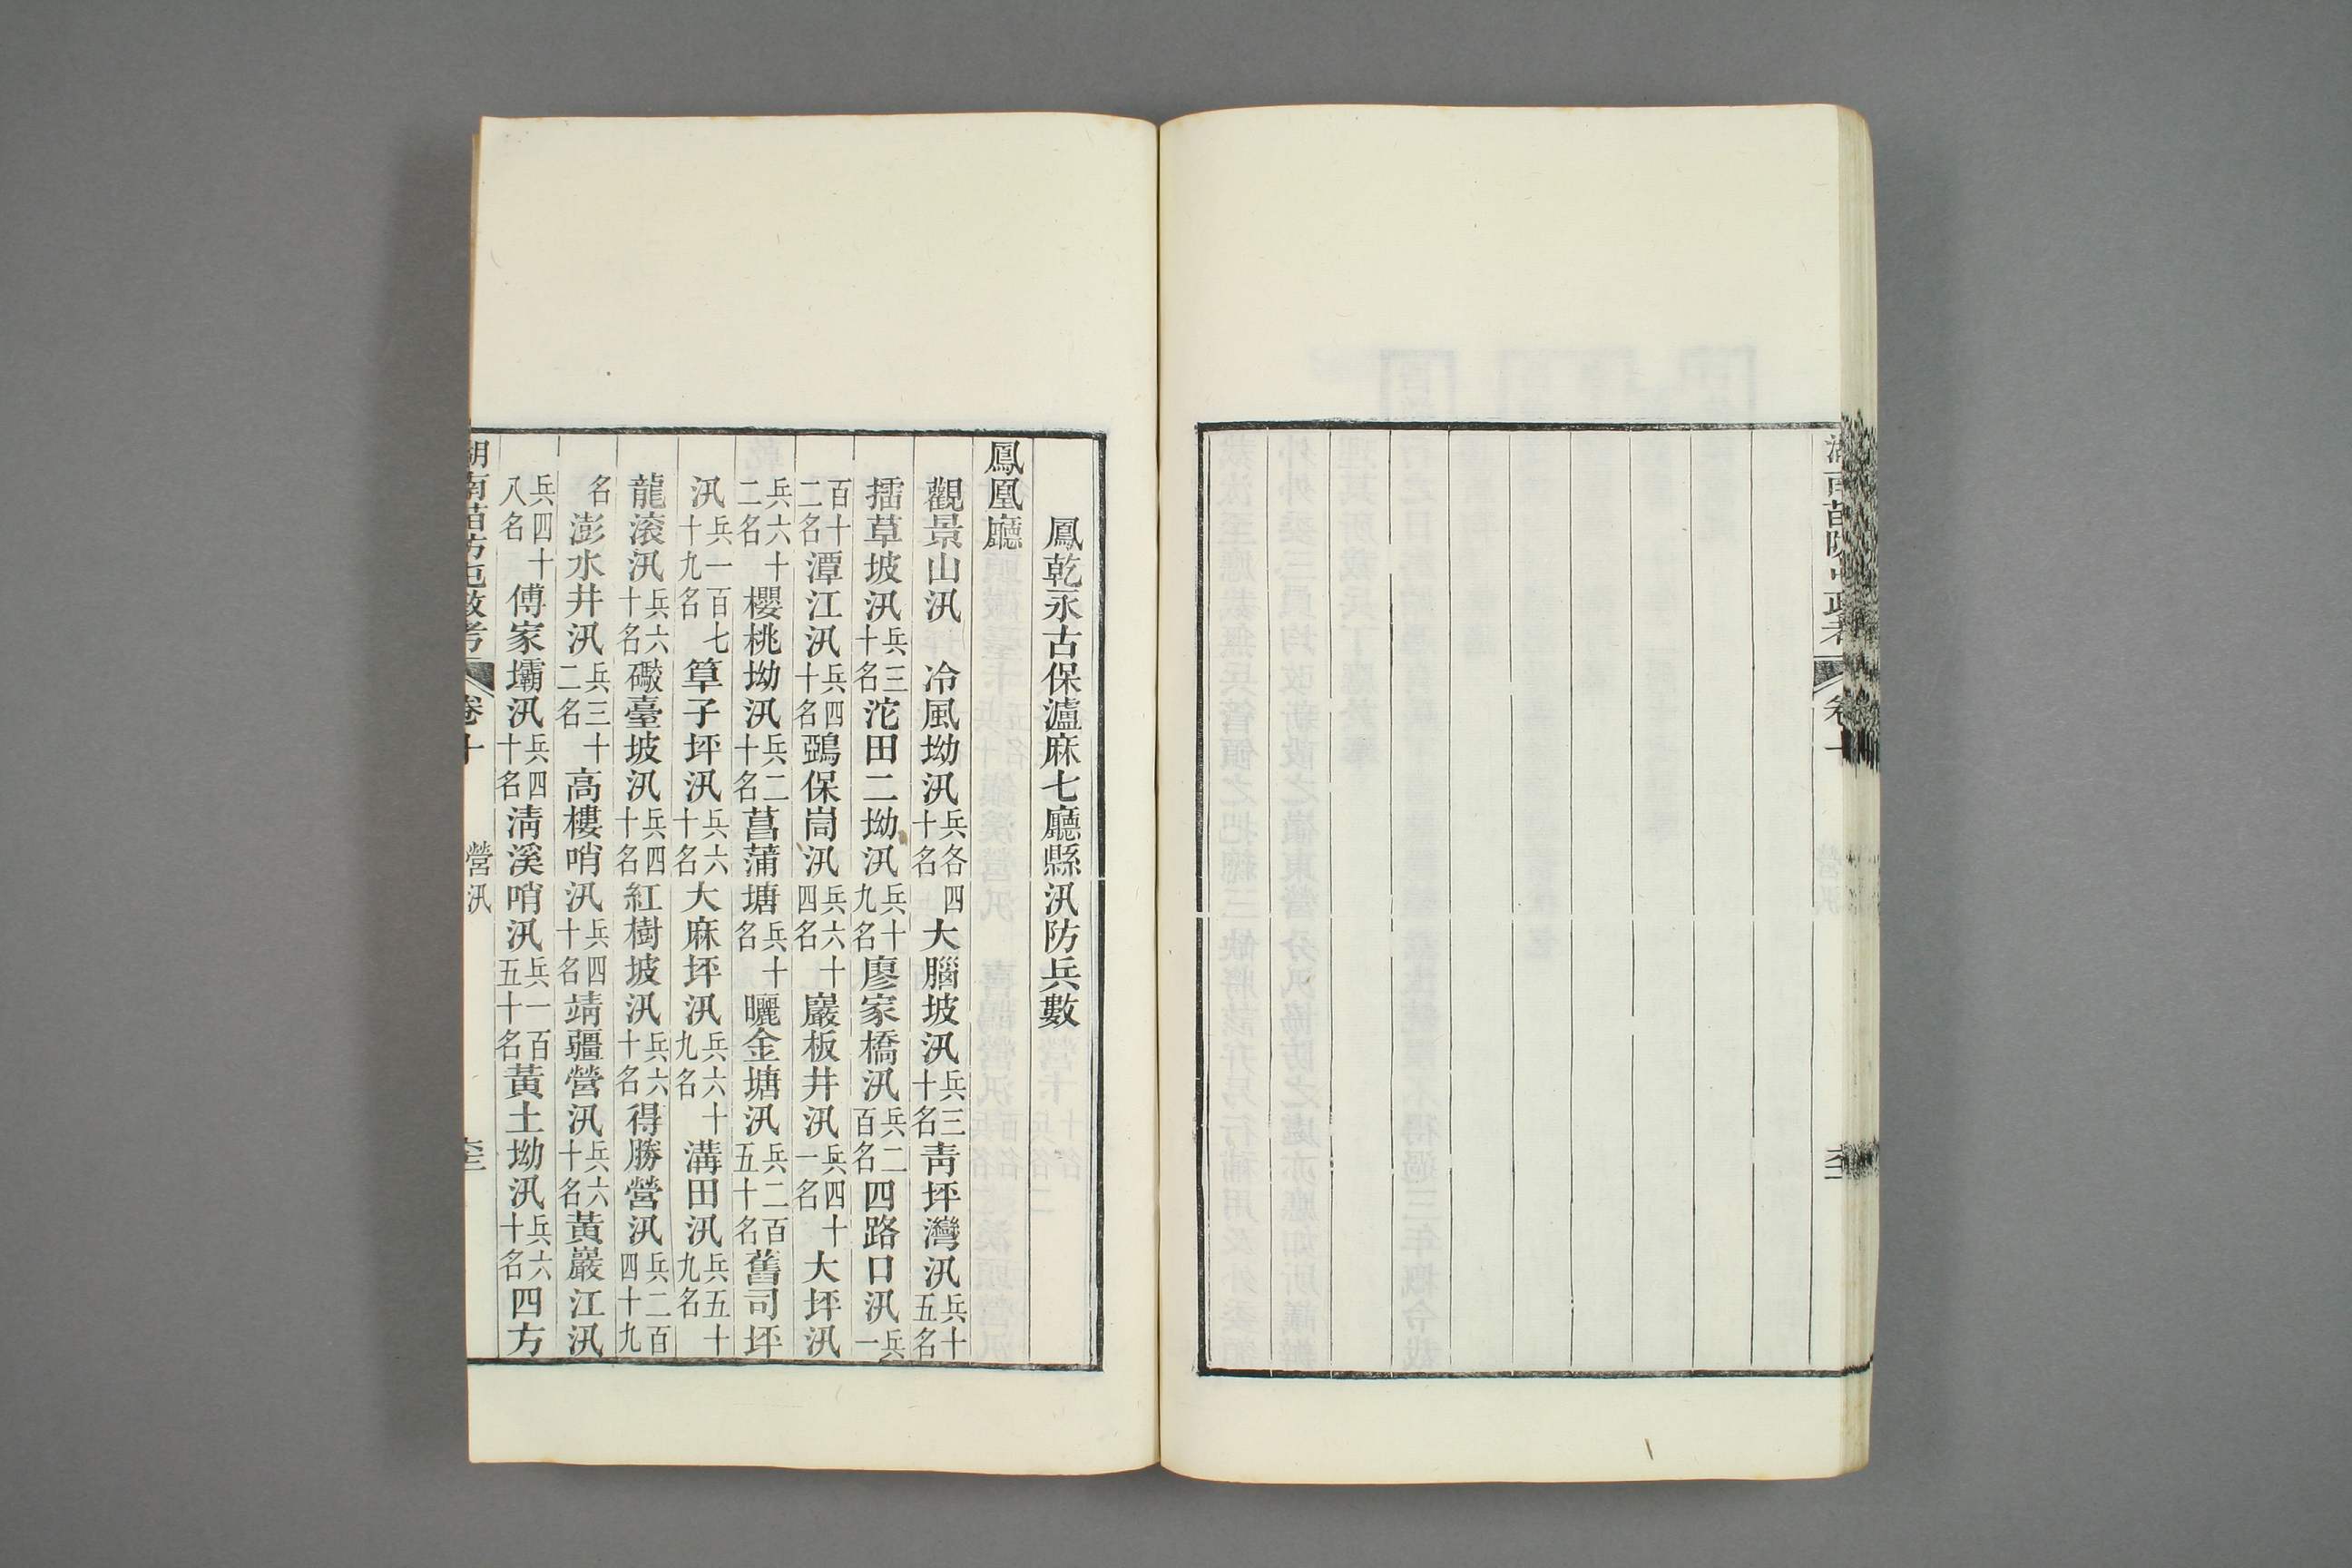 湖南苗防屯政考 卷十 營汛
鳳乾永古保瀘麻七廳縣汛防兵數
鳳凰廳
觀景山汛 冷風坳汛兵各四十名大腦坡汛兵三十名靑坪灣汛兵十五名
擂草坡汛兵三十名沱田二坳汛兵十九名廖家橋汛兵二百名四路口汛兵一
百十二名潭江汛兵四十名鵶保崗汛兵六十四名巖板井汛兵四十一名大坪汛
兵六十二名櫻桃坳汛兵二十名菖蒲塘兵十名曬金塘汛兵二百五十名舊司坪
汛兵一百七十九名筸子坪汛兵六十名大麻坪汛兵六十九名溝田汛兵五十九名
龍滚汛兵六十名礮臺坡汛兵四十名紅樹坡汛兵六十名得勝營汛兵二百四十九
名澎水井汛兵三十二名高樓哨汛兵四十名靖疆營汛兵六十名黃巖江汛
兵四十八名傅家壩汛兵四十名淸溪哨汛兵一百五十名黃土坳汛兵六十名四方
湖南苗防屯政考 卷十 營汛